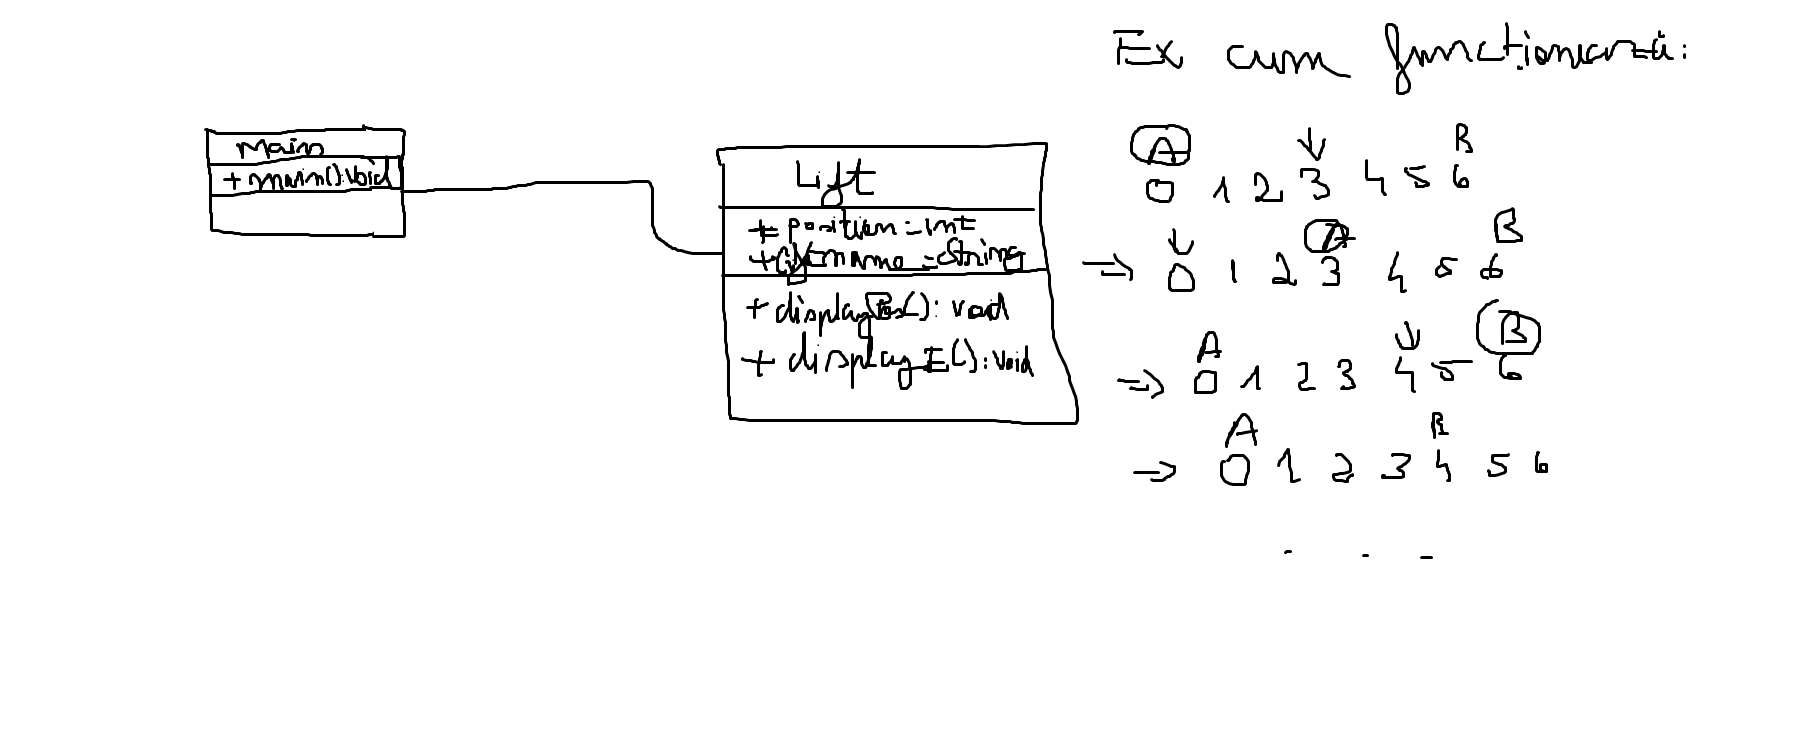 Main
+ main():void
Lift
+ position:int
name:String
+ displayPos():void
+ displayE():void
Ex cum funcționează:
A B
0 1 2 3 4 5 6
A B
0 1 2 3 4 5 6
A B
0 1 2 3 4 5 6
A B
0 1 2 3 4 5 6